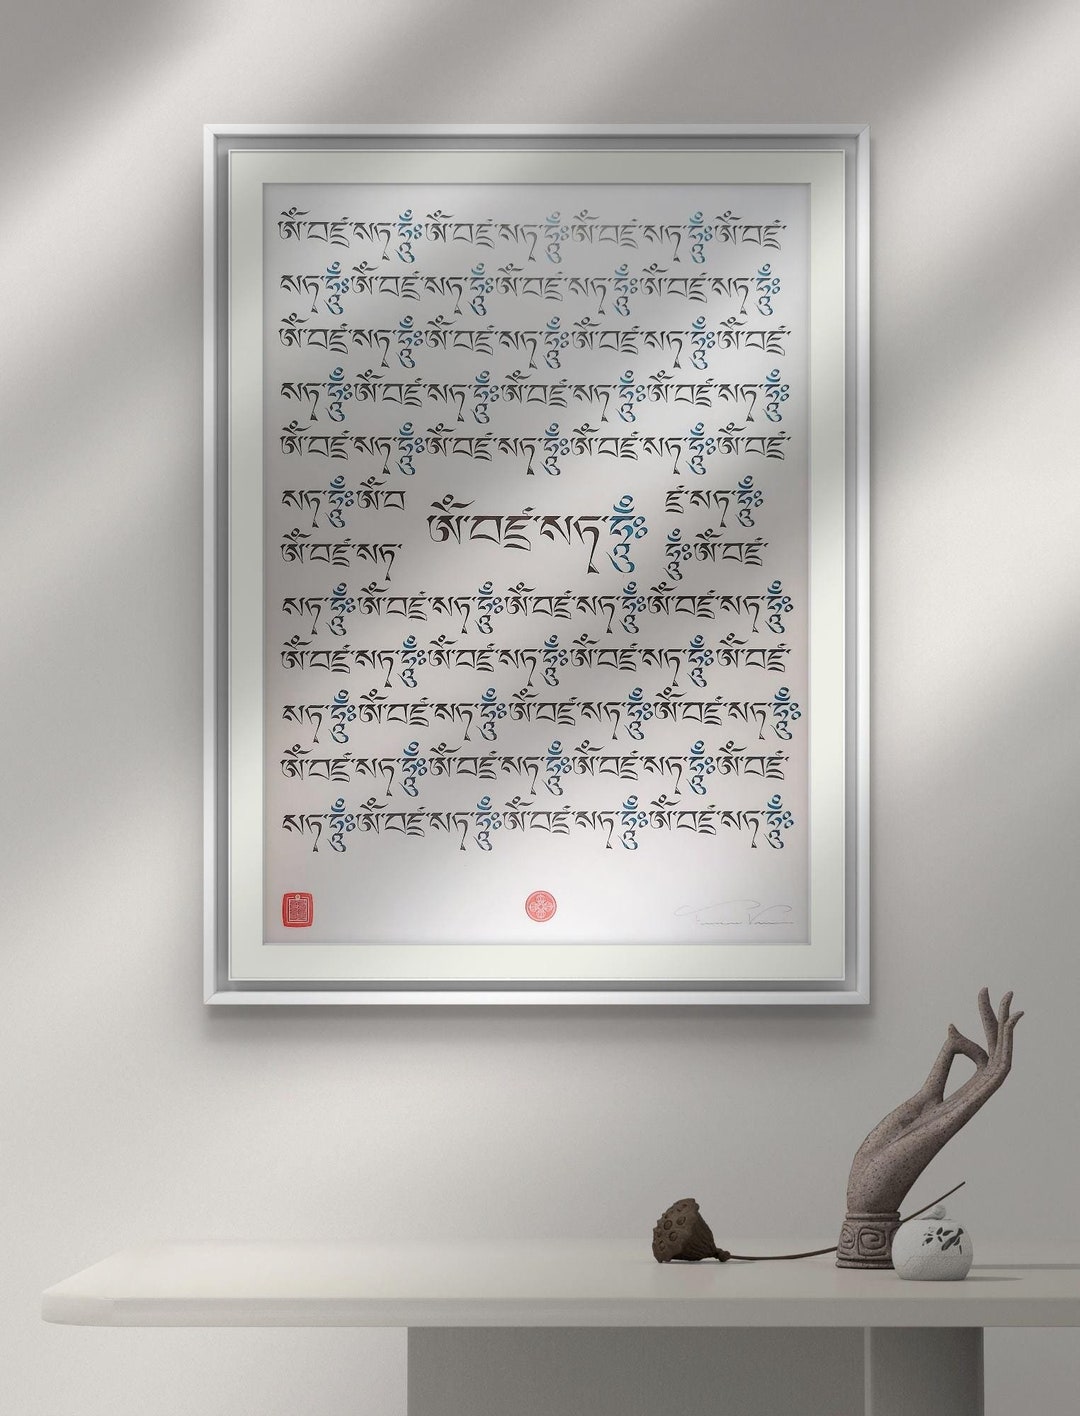 ཨོཾ་བཛྲ་སཏྭ་ཧཱུྃཿཨོཾ་བཛྲ་སཏྭ་ཧཱུྃཿཨོཾ་བཛྲ་སཏྭ་ཧཱུྃཿཨོཾ་བཛྲ་
སཏྭ་ཧཱུྃཿཨོཾ་བཛྲ་སཏྭ་ཧཱུྃཿཨོཾ་བཛྲ་སཏྭ་ཧཱུྃཿཨོཾ་བཛྲ་སཏྭ་ཧཱུྃཿ
ཨོཾ་བཛྲ་སཏྭ་ཧཱུྃཿཨོཾ་བཛྲ་སཏྭ་ཧཱུྃཿཨོཾ་བཛྲ་སཏྭ་ཧཱུྃཿཨོཾ་བཛྲ་
སཏྭ་ཧཱུྃཿཨོཾ་བཛྲ་སཏྭ་ཧཱུྃཿཨོཾ་བཛྲ་སཏྭ་ཧཱུྃཿཨོཾ་བཛྲ་སཏྭ་ཧཱུྃཿ
ཨོཾ་བཛྲ་སཏྭ་ཧཱུྃཿཨོཾ་བཛྲ་སཏྭ་ཧཱུྃཿཨོཾ་བཛྲ་སཏྭ་ཧཱུྃཿཨོཾ་བཛྲ་
སཏྭ་ཧཱུྃཿཨོཾ་བ ཛྲ་སཏྭ་ཧཱུྃཿ
ཨོཾ་བཛྲ་སཏྭ་ཧཱུྃཿ
ཨོཾ་བཛྲ་སཏྭ་ ཧཱུྃཿཨོཾ་བཛྲ་
སཏྭ་ཧཱུྃཿཨོཾ་བཛྲ་སཏྭ་ཧཱུྃཿཨོཾ་བཛྲ་སཏྭ་ཧཱུྃཿཨོཾ་བཛྲ་སཏྭ་ཧཱུྃཿ
ཨོཾ་བཛྲ་སཏྭ་ཧཱུྃཿཨོཾ་བཛྲ་སཏྭ་ཧཱུྃཿཨོཾ་བཛྲ་སཏྭ་ཧཱུྃཿཨོཾ་བཛྲ་
སཏྭ་ཧཱུྃཿཨོཾ་བཛྲ་སཏྭ་ཧཱུྃཿཨོཾ་བཛྲ་སཏྭ་ཧཱུྃཿཨོཾ་བཛྲ་སཏྭ་ཧཱུྃཿ
ཨོཾ་བཛྲ་སཏྭ་ཧཱུྃཿཨོཾ་བཛྲ་སཏྭ་ཧཱུྃཿཨོཾ་བཛྲ་སཏྭ་ཧཱུྃཿཨོཾ་བཛྲ་
སཏྭ་ཧཱུྃཿཨོཾ་བཛྲ་སཏྭ་ཧཱུྃཿཨོཾ་བཛྲ་སཏྭ་ཧཱུྃཿཨོཾ་བཛྲ་སཏྭ་ཧཱུྃཿ